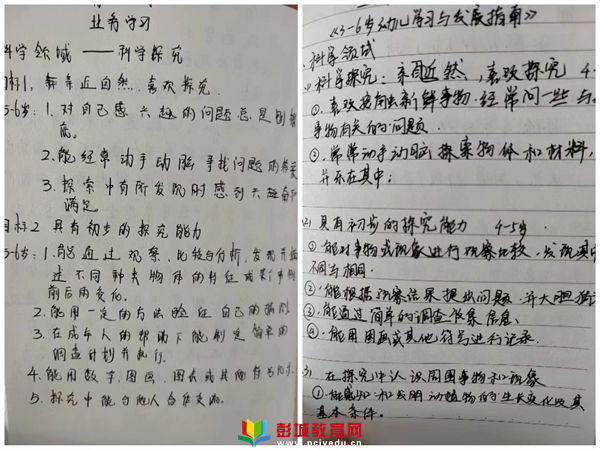 业务学习
科学领域——科学探究
目标1、亲近自然、喜欢探究
5-6岁：1.对自己感兴趣的问题总是刨根
底。
2.能经常动手动脑寻找问题的答案
3.探索中有所发现时感到兴奋和
满足
目标2 具有初步的探究能力
5-6岁：1.能通过观察、比较与分析，发现并描
述不同种类物体的特征或某个事物
前后的变化。
2.能用一定的方法验证自己的猜测
3.在成年人的帮助下能制定简单的
调查计划并执行。
4.能用数字、图画、图表或其他符号记录
5.探究中能与他人合作交流。
《3-6岁幼儿学习与发展指南》
科学领域
科学探究：亲近自然，喜欢探究 4-
①.喜欢接触新鲜事物.经常问一些与
事物有关的问题.
②.常常动手动脑探索物体和材料,
并乐在其中;
(2)具有初步的探究能力 4-5岁.
①.能对事物或现象进行观察比较,发现其
不同与相同.
②.能根据观察结果提出问题,并大胆猜
③.能通过简单的调查收集信息.
④.能用图画或其他符号进行记录.
3)在探究中认识周围事物和现象
①.能感知和发现动植物的生长变化及其
基本条件.
彭城教育网
www.pcjyedu.cn